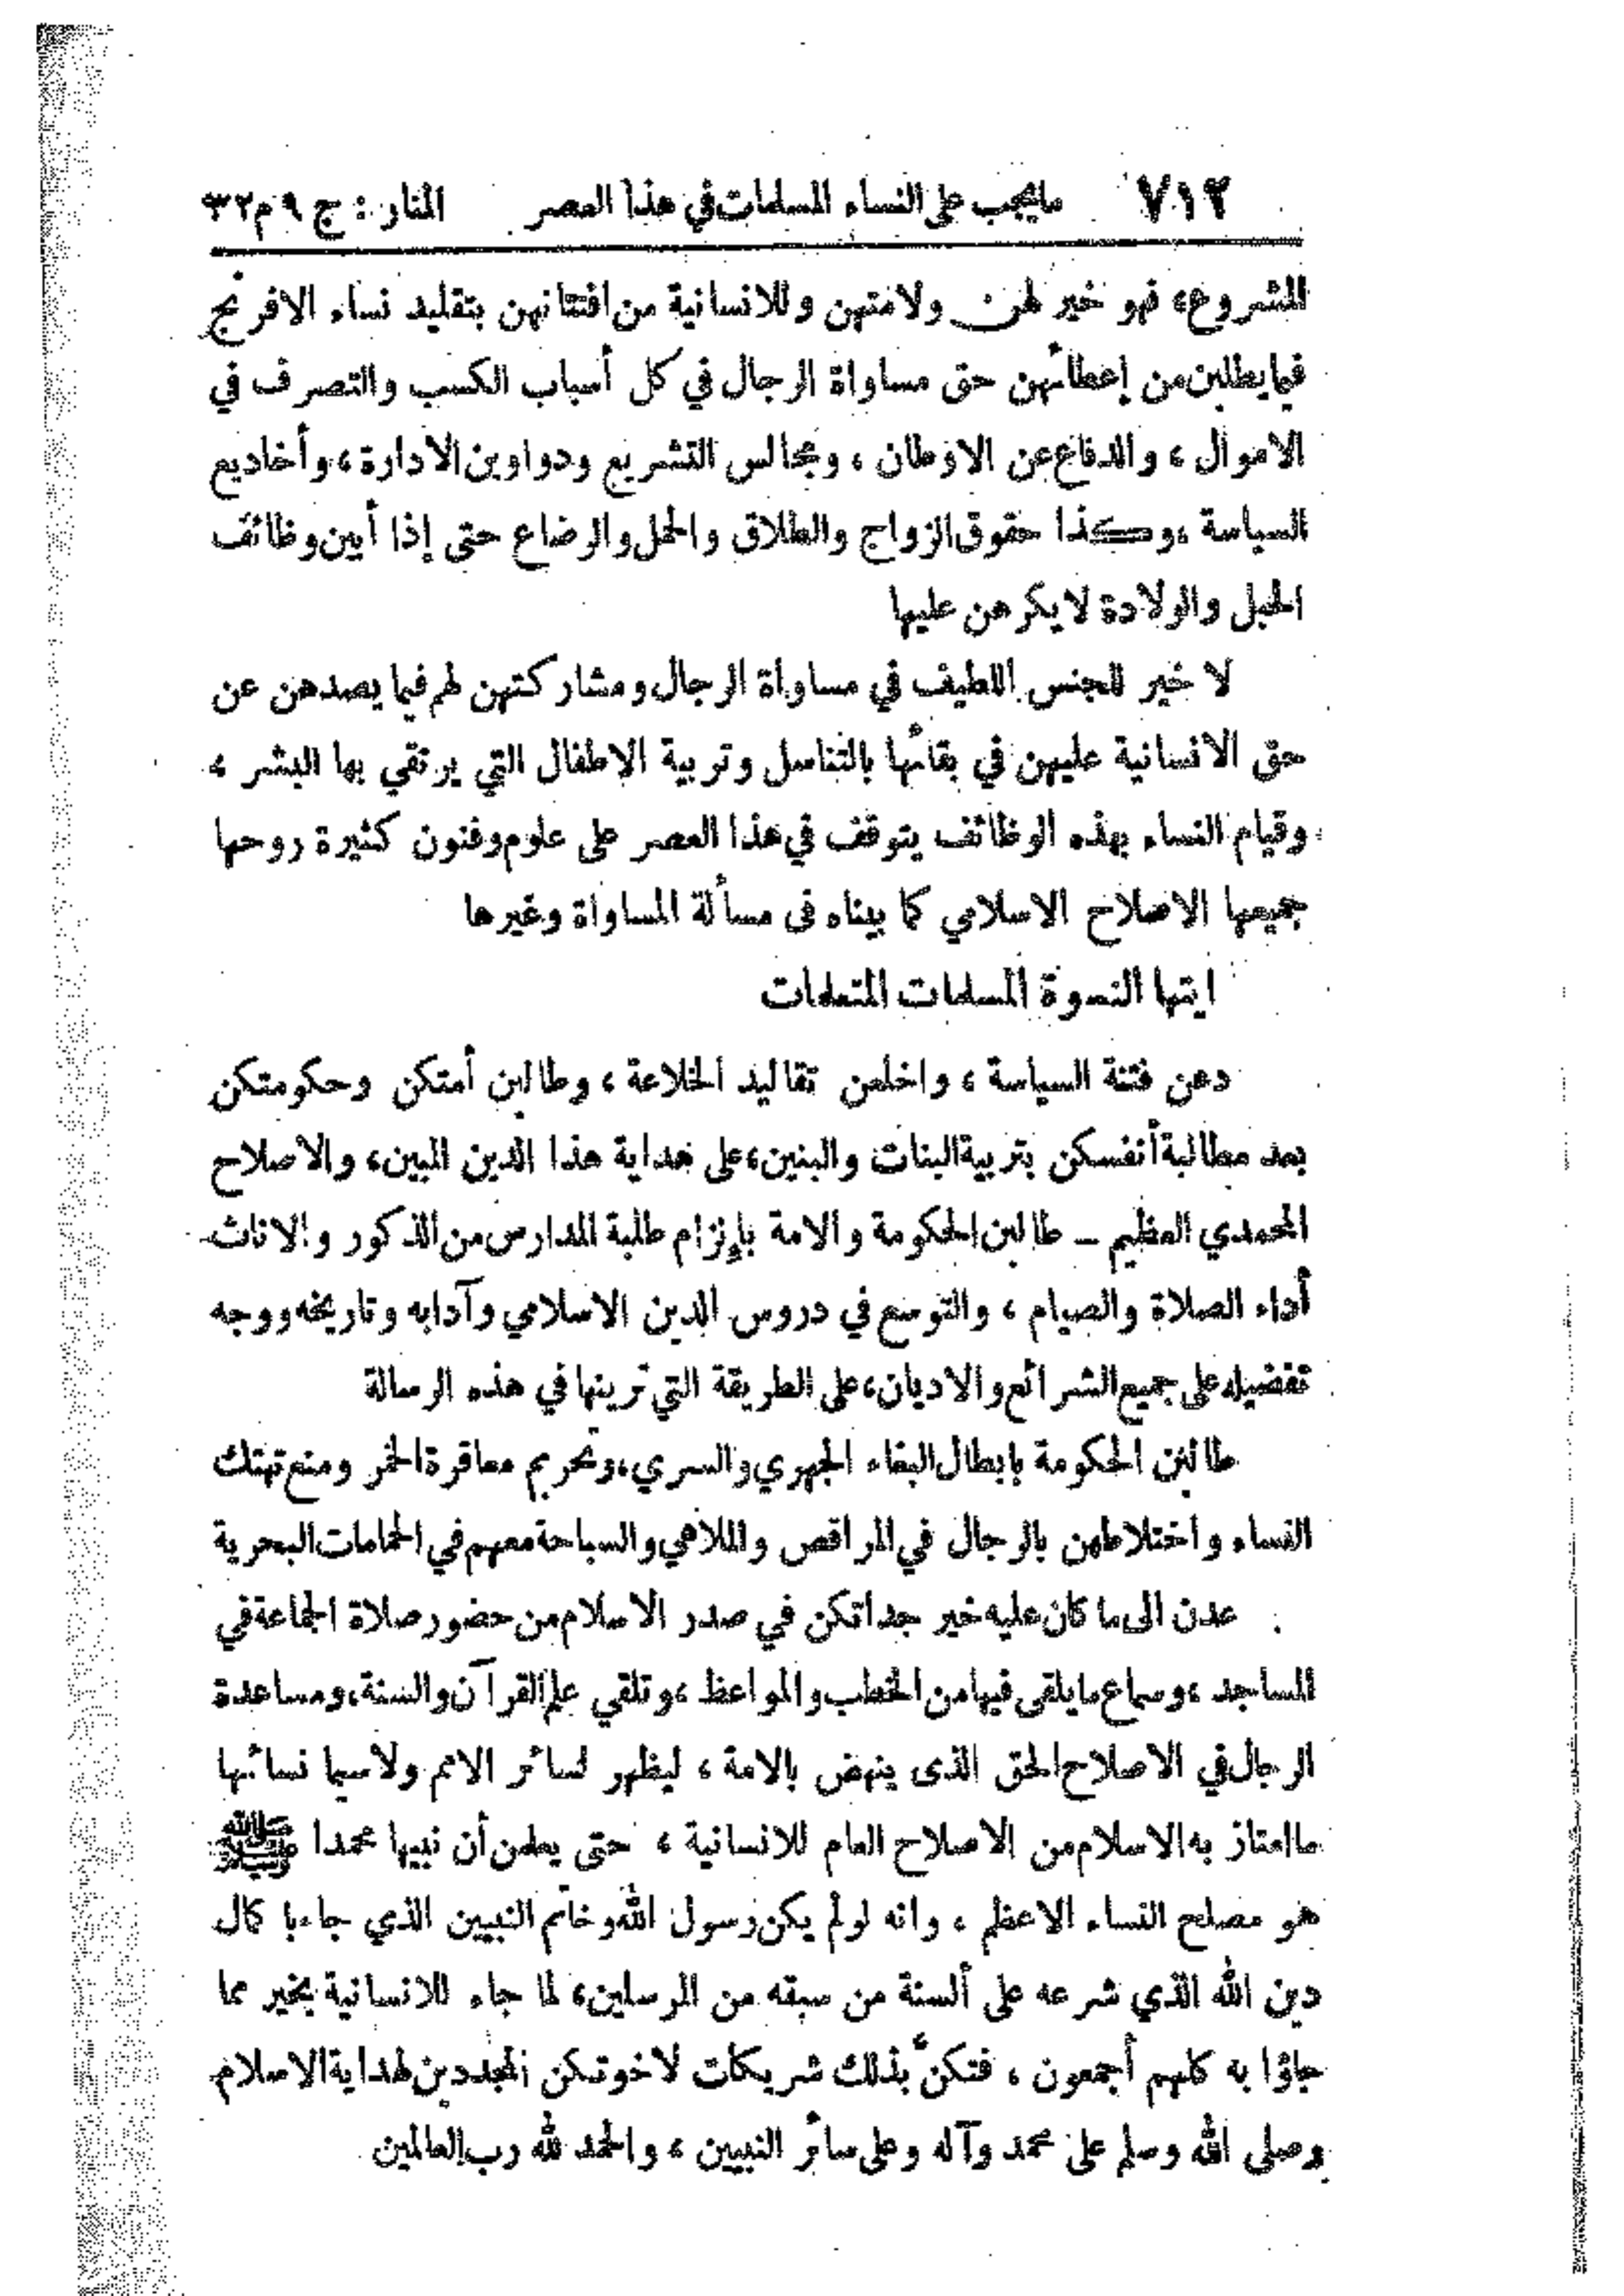 ٧١٢ ما يجب على النساء المسلمات في هذا العصر المنار : ج ٩ م ٣٢
المشروع، فهو خير لهن ولامتهن وللانسانية من افتتانهن بتقليد نساء الافرنج
فيما يطلبن من إعطائهن حق مساواة الرجال في كل أسباب الكسب والتصرف في
الاموال ، والدفاع عن الاوطان ، ومجالس التشريع ودواوين الادارة ، وأخاديع
السياسة ، وكذا حقوق الزواج والطلاق والحمل والرضاع حتى إذا أبين وظائف
الحبل والولادة لا يكرهن عليها
لا خير للجنس اللطيف في مساواة الرجال ومشاركتهن لهم فيما يصدهن عن
حق الانسانية عليهن في بقائها بالتناسل وتربية الاطفال التي يرتقي بها البشر ،
وقيام النساء بهذه الوظائف يتوقف في هذا العصر على علوم وفنون كثيرة روحها
جميعها الاصلاح الاسلامي كما بيناه فى مسألة المساواة وغيرها
ايتها النسوة المسلمات المتعلمات
دعن فتنة السياسة ، واخلعن تقاليد الخلاعة ، وطالبن أمتكن وحكومتكن
بعد مطالبة أنفسكن بتربية البنات والبنين، على هداية هذا الدين المبين، والاصلاح
المحمدي العظيم – طالبن الحكومة والامة بإلزام طلبة المدارس من الذكور والاناث
أداء الصلاة والصيام ، والتوسع في دروس الدين الاسلامي وآدابه وتاريخه ووجه
تفضيله على جميع الشرائع والاديان، على الطريقة التي ترينها في هذه الرسالة
طالبن الحكومة بابطال البغاء الجهري والسري، وتحريم معاقرة الخمر ومنع تهتك
النساء واختلاطهن بالرجال في المراقص والملاهي والسباحة معهم في الحمامات البحرية
عدن الى ما كان عليه خير جداتكن في صدر الاسلام من حضور صلاة الجماعة في
المساجد ، وسماع ما يلقى فيها من الخطب والمواعظ ، وتلقي علم القرآن والسنة، ومساعدة
الرجال في الاصلاح الحق الذى ينهض بالامة ، ليظهر لسائر الامم ولاسيما نسائها
ما امتاز به الاسلام من الاصلاح العام للانسانية ، حتى يعلمن أن نبيها محمدا ﷺ
هو مصلح النساء الاعظم ، وانه لو لم يكن رسول الله وخاتم النبيين الذي جاء با كمال
دين الله الذي شرعه على ألسنة من سبقه من المرسلين، لما جاء للانسانية بخير مما
جاؤا به كلهم أجمعون ، فتكنّ بذلك شريكات لاخوتكن المجددين لهداية الاسلام
وصلى الله وسلم على محمد وآله وعلى سائر النبيين ، والحمد لله رب العالمين